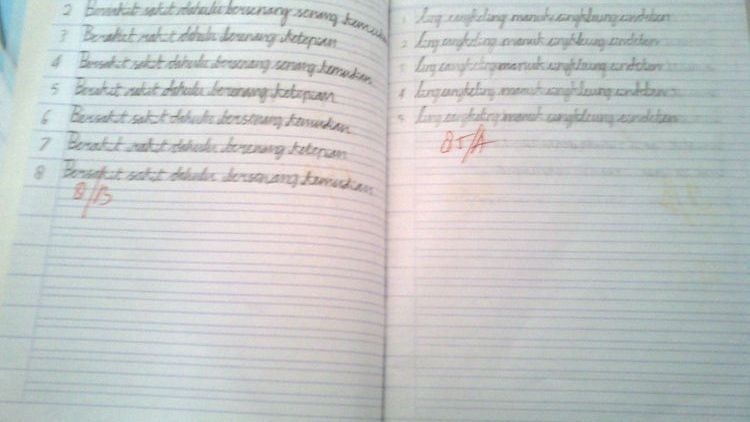 2 Bersakit sakit dahulu bersenang senang kemudian
3 Berakit rakit dahulu berenang ketepian
4 Bersakit sakit dahulu bersenang senang kemudian
5 Berakit rakit dahulu berenang ketepian
6 Bersakit sakit dahulu bersenang kemudian
7 Berakit rakit dahulu berenang ketepian
8 Bersakit sakit dahulu bersenang kemudian
8/B
1 Ang angkeling manuk angkleung
2 Ang angkeling manuk angkleung
3 Ang angkeling manuk angkleung
4 Ang angkeling manuk angkleung
5 Ang angkeling manuk angkleung
85/A